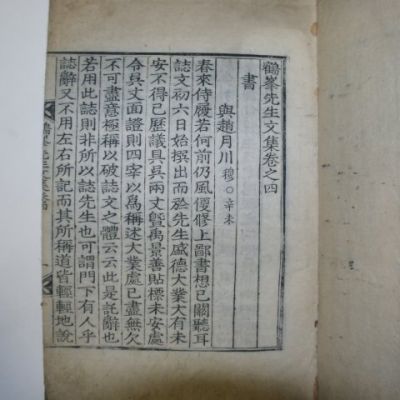 鶴峯先生文集卷之四
書
與趙月川 穆○辛未
春來侍履若何前仍風便修上鄙書想已關聽耳
誌文初六日始撰出而於先生盛德大業大有未
安不得已歷議具吳兩丈曁禹景善貼標未安處
令具丈面證則四宰以爲稱述大業處已盡無欠
不可盡意極稱以破誌文之體云云此是託辭也
若用此誌則非所以誌先生也可謂門下有人乎
誌辭又不用左右所記而其所稱道皆輕輕地說